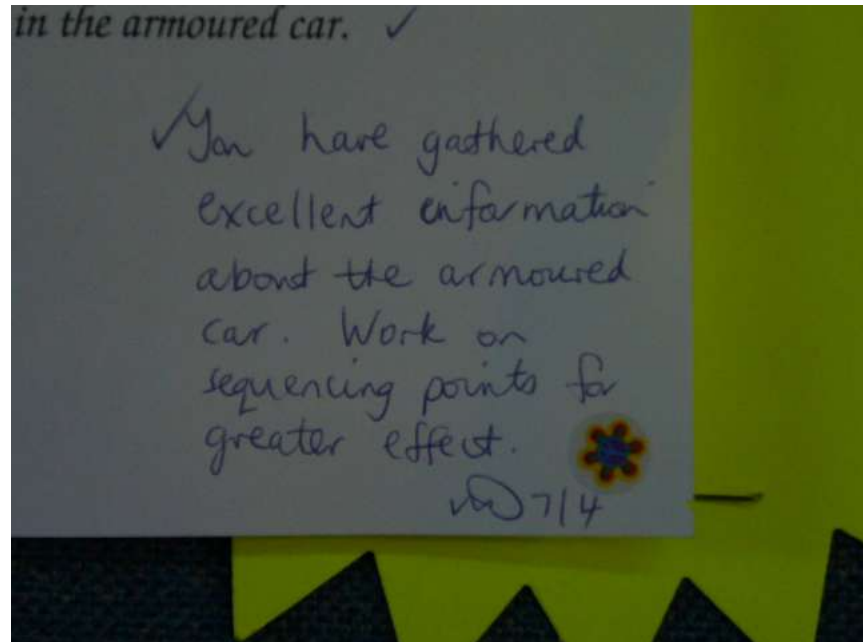 in the armoured car. ✓
✓ You have gathered
excellent information
about the armoured
car. Work on
sequencing points for
greater effect.
7/4